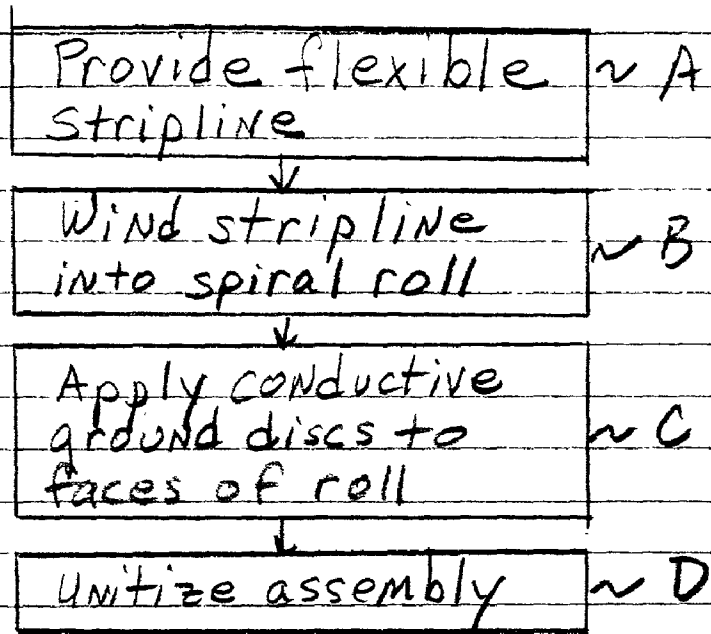 Provide flexible ~ A
stripline
Wind stripline ~ B
into spiral roll
Apply conductive
ground discs to ~ C
faces of roll
Unitize assembly ~ D